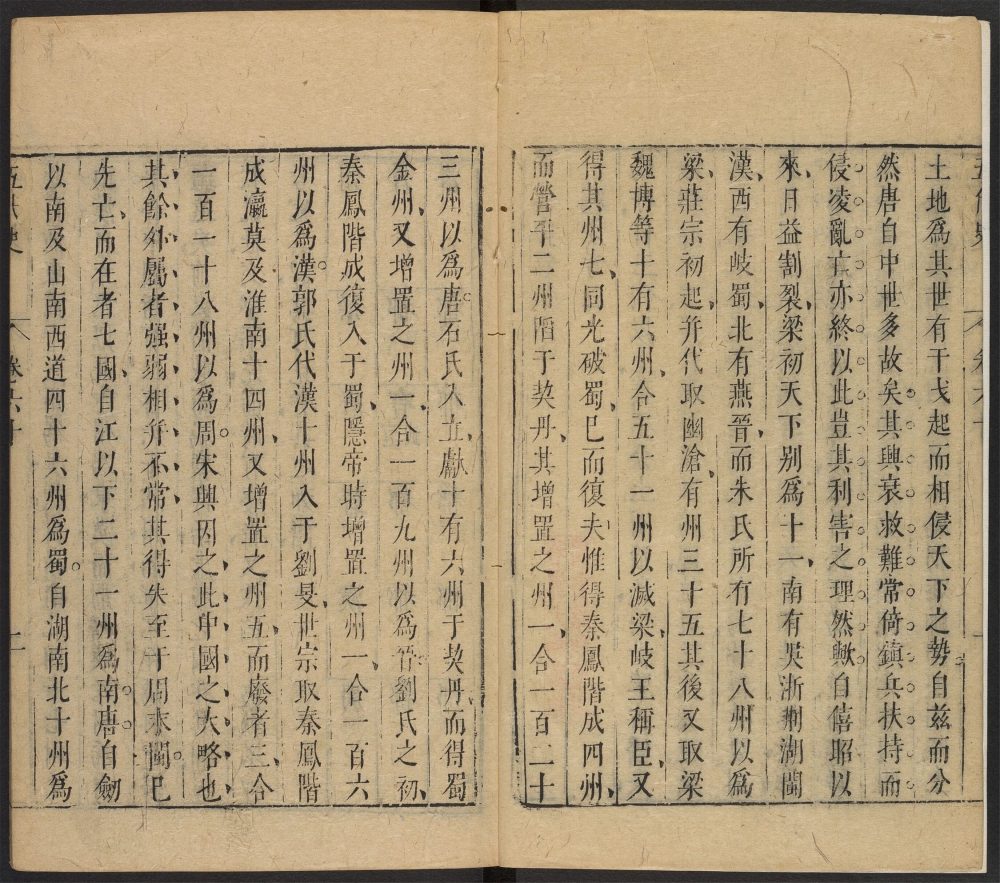 土地爲其世有干戈起而相侵天下之勢自兹而分
然唐自中世多故矣其興衰救難常倚鎮兵扶持而
侵凌亂亡亦終以此豈其利害之理然歟自僖昭以
來日益割裂梁初天下别爲十一南有吴浙荆湖閩
漢西有岐蜀北有燕晉而朱氏所有七十八州以爲
梁莊宗初起并代取幽滄有州三十五其後又取梁
魏博等十有六州合五十一州以滅梁岐王稱臣又
得其州七同光破蜀已而復失惟得秦鳳階成四州
而營平二州陷于契丹其增置之州一合一百二十
三州以爲唐石氏入立獻十有六州于契丹而得蜀
金州又增置之州一合一百九州以爲晉劉氏之初
秦鳳階成復入于蜀隱帝時增置之州一合一百六
州以爲漢郭氏代漢十州入于劉旻世宗取秦鳳階
成瀛莫及淮南十四州又增置之州五而廢者三合
一百一十八州以爲周宋興因之此中國之大略也
其餘外屬者强弱相并不常其得失至于周末閩已
先亡而在者七國自江以下二十一州爲南唐自劒
以南及山南西道四十六州爲蜀自湖南北十州爲
五代史 卷六十